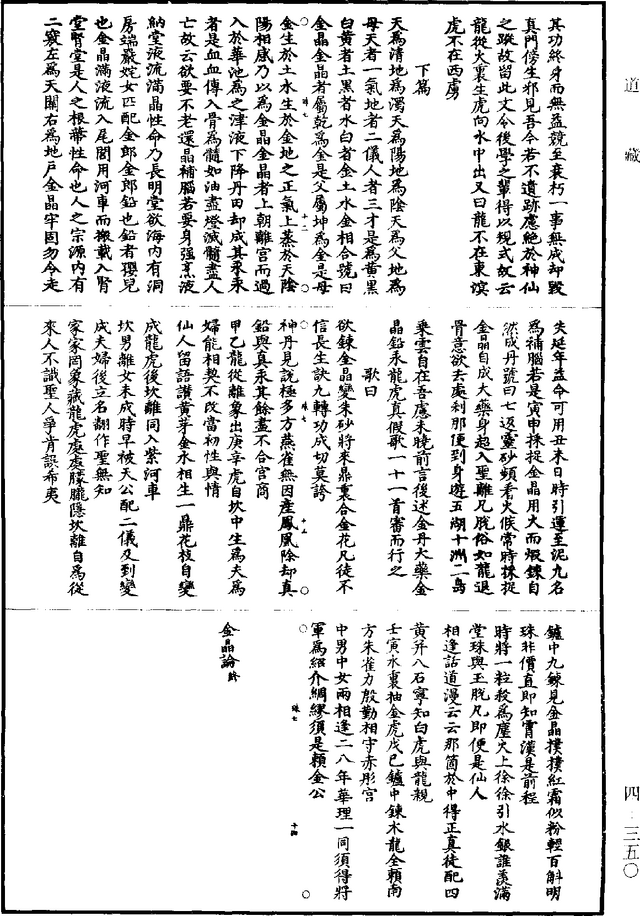 道藏
其功終身而無益競至衰朽一事無成却毀
真門傍生邪見吾今若不遺跡慮絕於神仙
之蹤故留此文令後學之輩得以規式訣云
龍從火裏生虎向水中出又曰龍不在東溟
虎不在西虜
下篇
天為清地為濁天為陽地為陰天為父地為
母天者一氣地者二儀人者三才是為黃黑
白黃者土黑者水白者金土水金相合號曰
金晶金晶者屬乾為金是父屬坤為金是母
金生於土水生於金地之正氣上蒸於天陰
陽相感乃以為金晶金晶者上朝離宮而過
入於華池為之津液下降丹田却成其汞汞
者是血血傳入骨為髓如油盡燈滅髓盡人
亡故云欲要不老還晶補腦若要身强烹液
納堂液流滿晶性命乃長明堂欲海內有洞
房端嚴姹女匹配金郎金郎鉛也鉛者瓔兒
也金晶滿液流入尾閭用河車而搬載入腎
堂腎堂是人之根蒂性命也人之宗源內有
二竅左為天關右為地戶金晶牢固勿令走
失延年益命可用丑未日時引運至泥九名
為補腦若是寅申採捉金晶用火而煅鍊自
然成丹號曰七返靈砂頻看火候常時採捉
金晶自成大藥身超入聖離凡脫俗如龍退
骨意欲去處剎那便到身遊五湖十洲二島
乘雲自在吾慮未曉前言後述金丹大藥金
晶鉛汞龍虎真假歌一十一首審而行之
歌曰
欲鍊金晶變朱砂將來鼎裏合金花凡徒不
信長生訣九轉功成切莫誇
神丹見說極多方燕雀無因產鳳凰除却真
鉛與真汞其餘盡不合宮商
甲乙龍從離象出庚辛虎自坎中生為夫為
婦能相契不改當初性與情
仙人留語讚黃芽金水相生一鼎花枝自變
成龍虎後坎離同入紫河車
坎男離女未成時早被天公配二儀及到變
成夫婦後立名翻作聖無知
家家罔象藏龍虎處處朦朧隱坎離自為從
來人不識聖人爭肯誤希夷
鑪中九鍊見金晶撲撲紅霜似粉輕百斛明
珠非價直即知霄漢是前程
時將一粒殺為塵火上徐徐引水銀誰羨滿
堂珠與玉脫凡即便是仙人
相逢話道漫云云那箇於中得正真徒配四
黃并八石寧知白虎與龍親
壬寅水裏抽金虎戊巳鑪中鍊木龍全頼南
方朱雀力殷勤相守赤彤宮
中男中女兩相逢二八年華理一同須得將
軍為紹介綢繆須是頼金公
金晶論終
四·三五〇